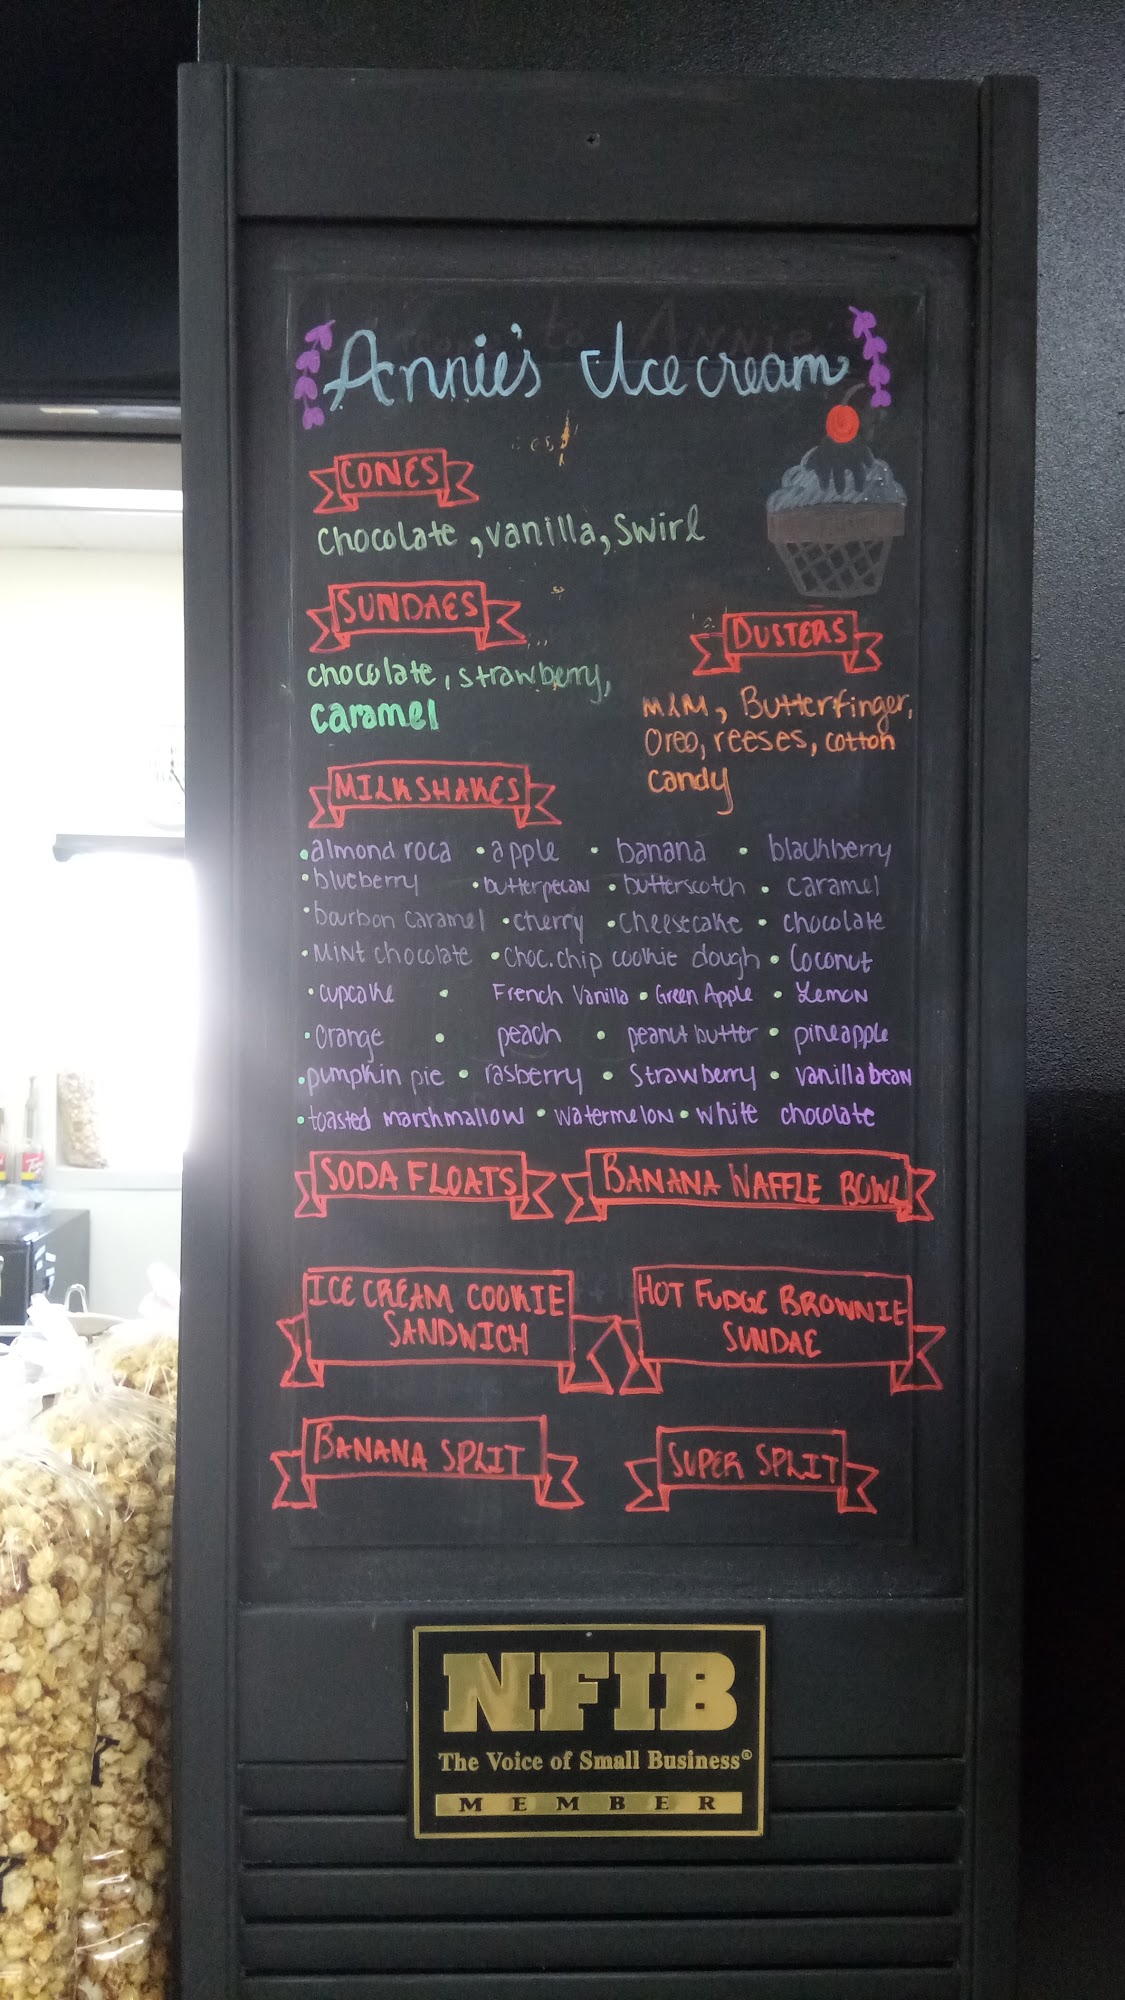 Annie's Ice cream
CONES
chocolate, vanilla, swirl
SUNDAES
chocolate, strawberry,
caramel
DUSTERS
M&M, Butterfinger,
Oreo, reeses, cotton
candy
MILKSHAKES
• almond roca • apple • banana • blackberry
• blueberry • butterpecan • butterscotch • caramel
• bourbon caramel • cherry • cheesecake • chocolate
• Mint chocolate • choc. chip cookie dough • Coconut
• cupcake • French Vanilla • Green Apple • Lemon
• Orange • peach • peanut butter • pineapple
• pumpkin pie • rasberry • Strawberry • vanilla bean
• toasted marshmallow • watermelon • white chocolate
SODA FLOATS
BANANA WAFFLE BOWL
ICE CREAM COOKIE
SANDWICH
HOT FUDGE BROWNIE
SUNDAE
BANANA SPLIT
SUPER SPLIT
NFIB
The Voice of Small Business®
MEMBER